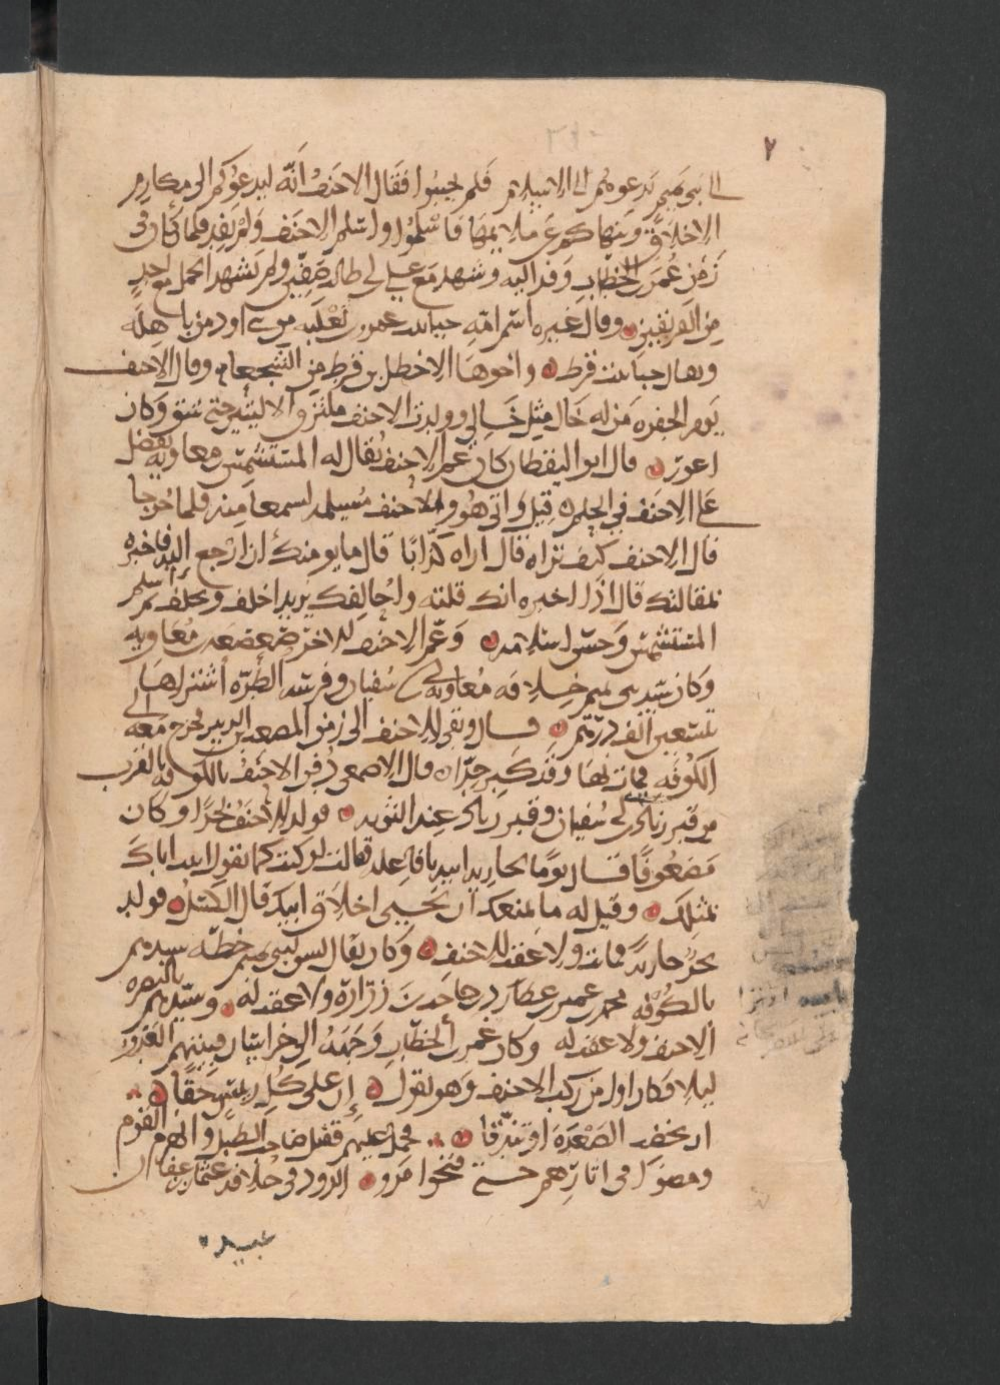 ٢
الى بنى تميم يدعوهم الى الاسلام فلم يجيبوا فقال الاحنف انه ليدعوكم الى مكارم
الاخلاق وينهاكم عن ملايمها فاسلموا واسلم الاحنف ولم يفد فلما كان فى
زمن عمر بن الخطاب وفد اليه وشهد مع على بن ابى طالب صفين ولم يشهد الجمل مع احد
من الفريقين وقال غيره اسم امه حبا بنت عمرو بن ثعلبه من بنى اود من باهله
ويقال حبا بنت قرط واخوها الاخطل بن قرط من الشجعان وقال الاحنف
يوم الجفره من له خال مثل خالى وولدت الاحنف ملتزق الاليتين حتى شق وكان
اعور قال ابو اليقظان كان عم الاحنف يقال له المتشمس بن معاويه يفضل
على الاحنف فى الحلم قيل واتى هو والاحنف مسيلمه ليسمعا منه فلما خرجا
قال الاحنف كيف تراه قال اراه كذابا قال ما يومنك ان ارجع اليه فاخبره
بمقالتك قال اذا اخبره انك قلته واحالفك يريد احلف وتحلف ثم اسلم
المتشمس وحسن اسلامه وعم الاحنف الاخر صعصعه بن معاويه
وكان سيد بنى تميم خلافه معاويه بن ابى سفيان وفرسه الطره اشتراها
بتسعين الف درهم قال وبقى الاحنف الى زمن المصعب بن الزبير فخرج معه الى
الكوفه فمات بها وقد كبر جدا قال الاصمعى دفن الاحنف بالكوفه بالقرب
من قبر زياد بن ابى سفيان وقبر زياد عند الثويه فولد الاحنف بحرا وكان
مضعوفا قال يوما لجاريه ابيه يا فاعله قالت لو كنت كما تقول اتيت اباك
بمثلك وقيل له ما يمنعك ان تحيى اخلاق ابيك قال الكسل فولد
بحر جاريه فماتت ولا عقب للاحنف وكان يقال ليس لبنى تميم خطه سيدهم
بالكوفه محمد بن عمير بن عطارد بن حاجب بن زراره ولا عقب له وسيدهم بالبصره
الاحنف ولا عقب له وكان عمر بن الخطاب وجهه الى خراسان فبيتهم العدو
ليلا فكان اول من ركب الاحنف وهو يقول ان على كل رئيس حقا
ان يخضب الصعده او تندقا ثم حمل عليهم فقتل صاحب الطبل وانهزم القوم
ومضوا فى اثارهم حتى فتحوا مرو الروذ فى خلافه عثمان بن عفان